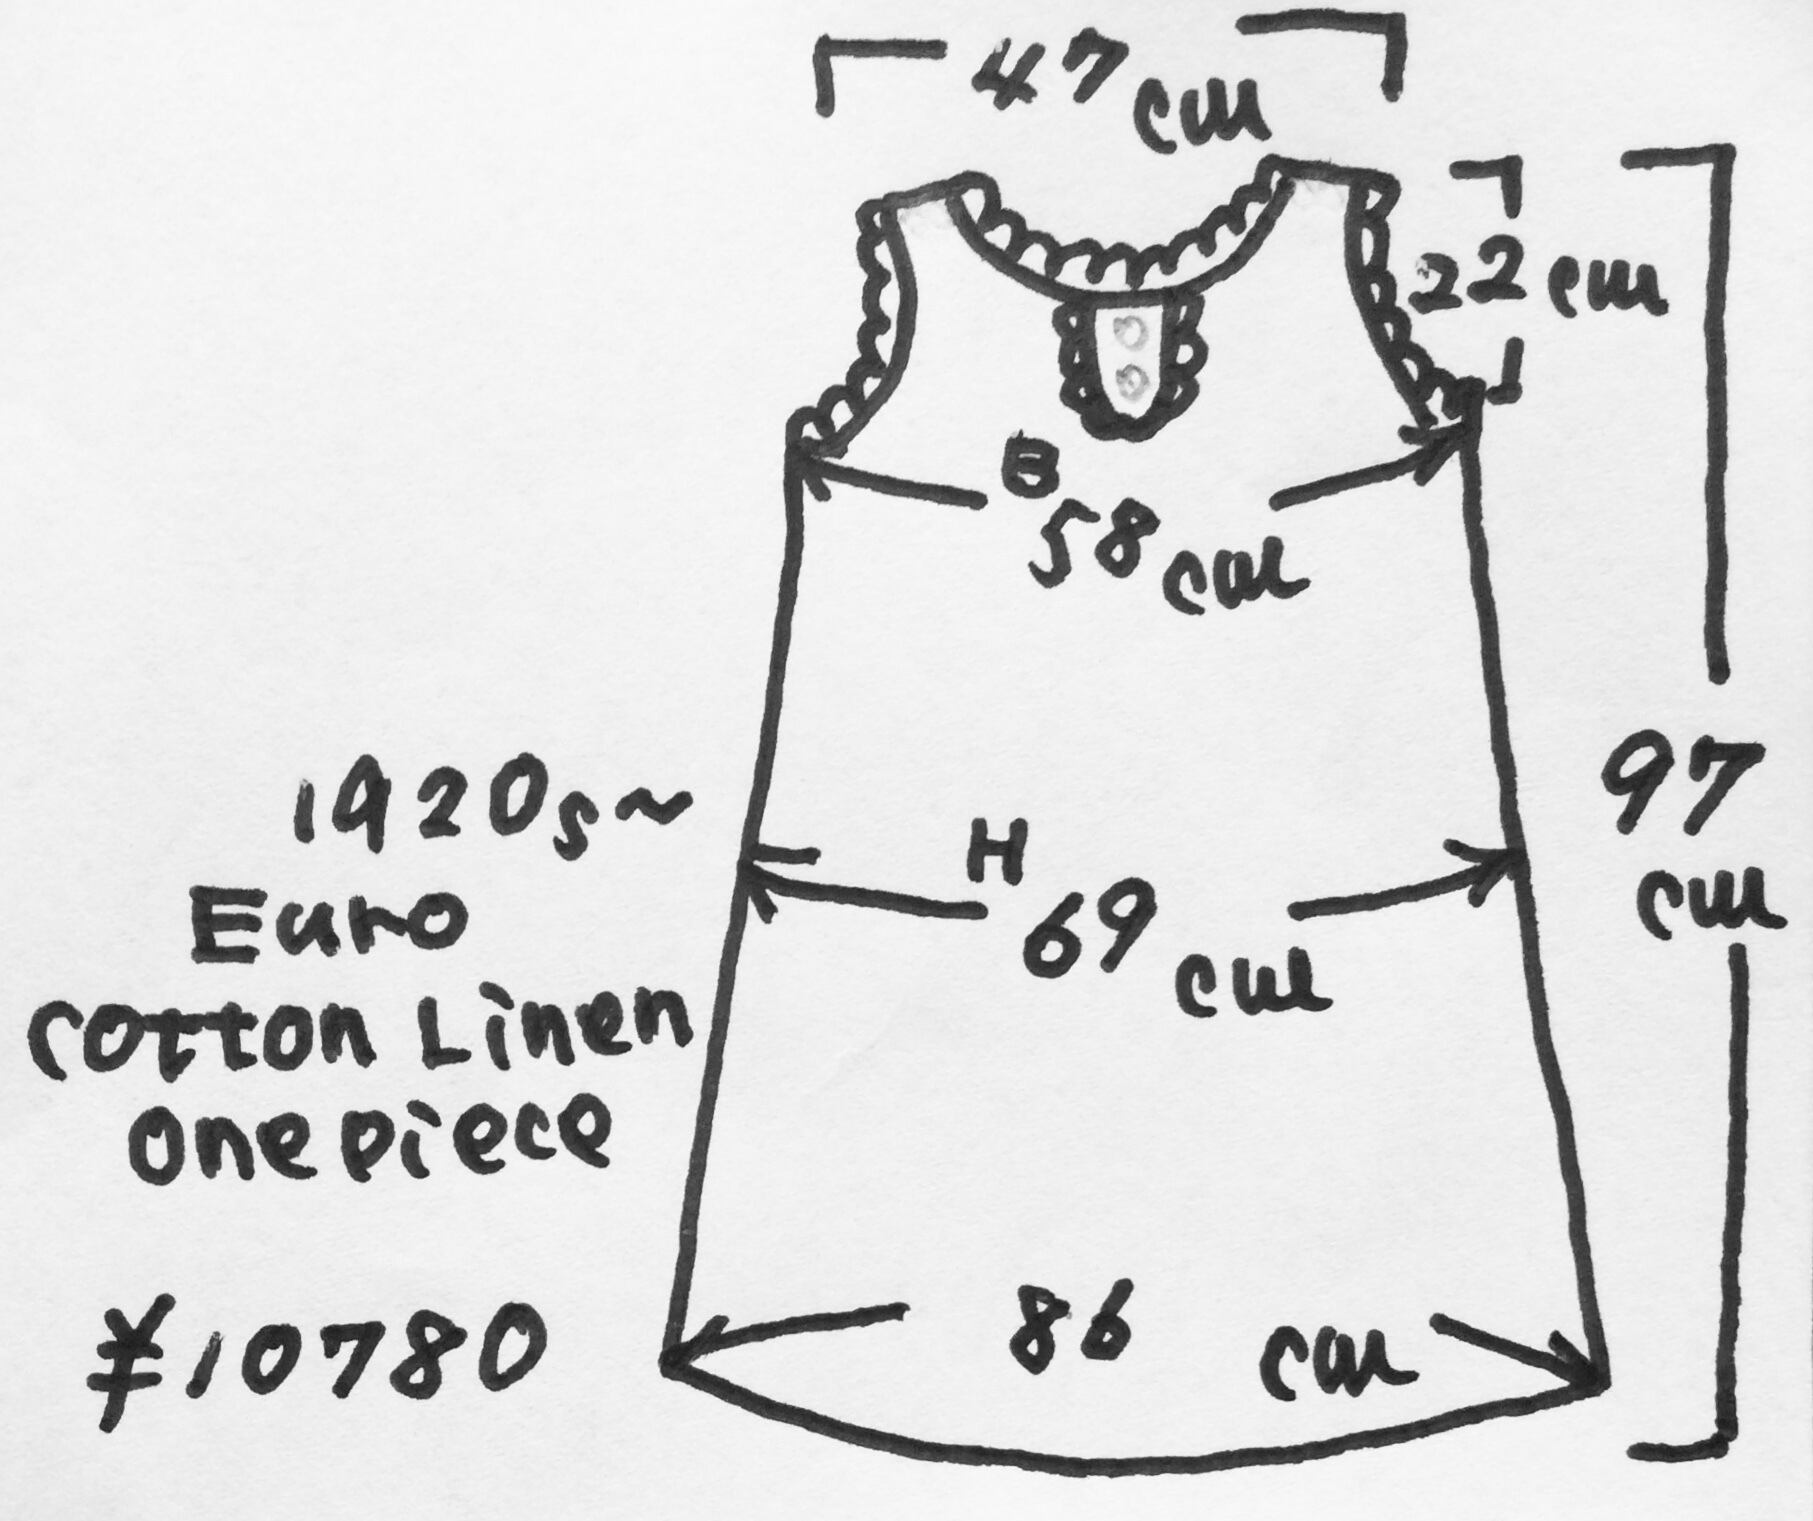 47cm
22cm
B
58cm
1920s~
Euro
cotton Linen
onepiece
H
69cm
97
cm
¥10780
86 cm